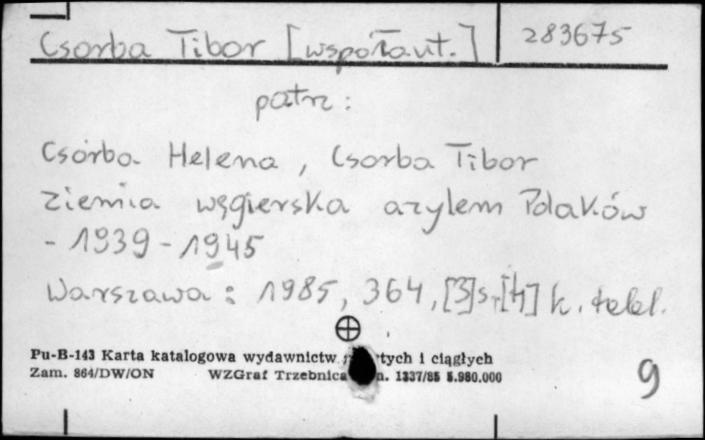 Csorba Tibor [współaut.] 283675
patrz:
Csorba Helena, Csorba Tibor
Ziemia węgierska azylem Polaków
- 1939-1945
Warszawa: 1985, 364, [3]s, [4] k. tabl.
Pu-B-143 Karta katalogowa wydawnictw tych i ciągłych
Zam. 864/DW/ON WZGraf Trzebnica n. 1337/85 5.980.000
9